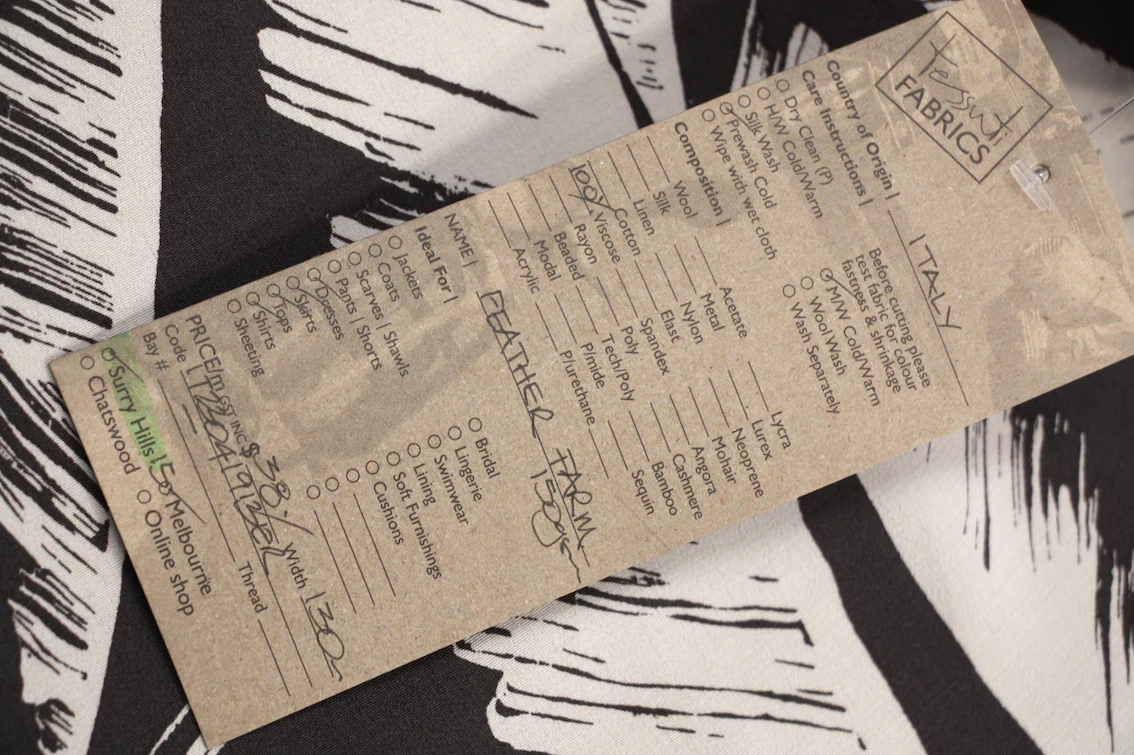 Tessuti
FABRICS
Country of Origin | ITALY
Care Instructions |
Before cutting please
test fabric for colour
fastness & shrinkage
Dry Clean (P)
H/W Cold/Warm
Silk Wash
Prewash Cold
Wipe with wet cloth
M/W Cold/Warm
Wool Wash
Wash Separately
Composition |
Wool
Silk
Linen
Cotton
100% Viscose
Rayon
Beaded
Modal
Acrylic
Acetate
Metal
Nylon
Elast
Spandex
Poly
Tech/Poly
P/mide
P/urethane
Lycra
Lurex
Neoprene
Mohair
Angora
Cashmere
Bamboo
Sequin
NAME | FEATHER FARM
150gsm
Ideal For |
Jackets
Coats
Scarves | Shawls
Pants | Shorts
Dresses
Skirts
Tops
Shirts
Sheeting
Bridal
Lingerie
Swimwear
Lining
Soft Furnishings
Cushions
PRICE/m GST INC $ 38 Width 130
Code |
Bay # Thread
Surry Hills | Melbourne
Chatswood Online shop